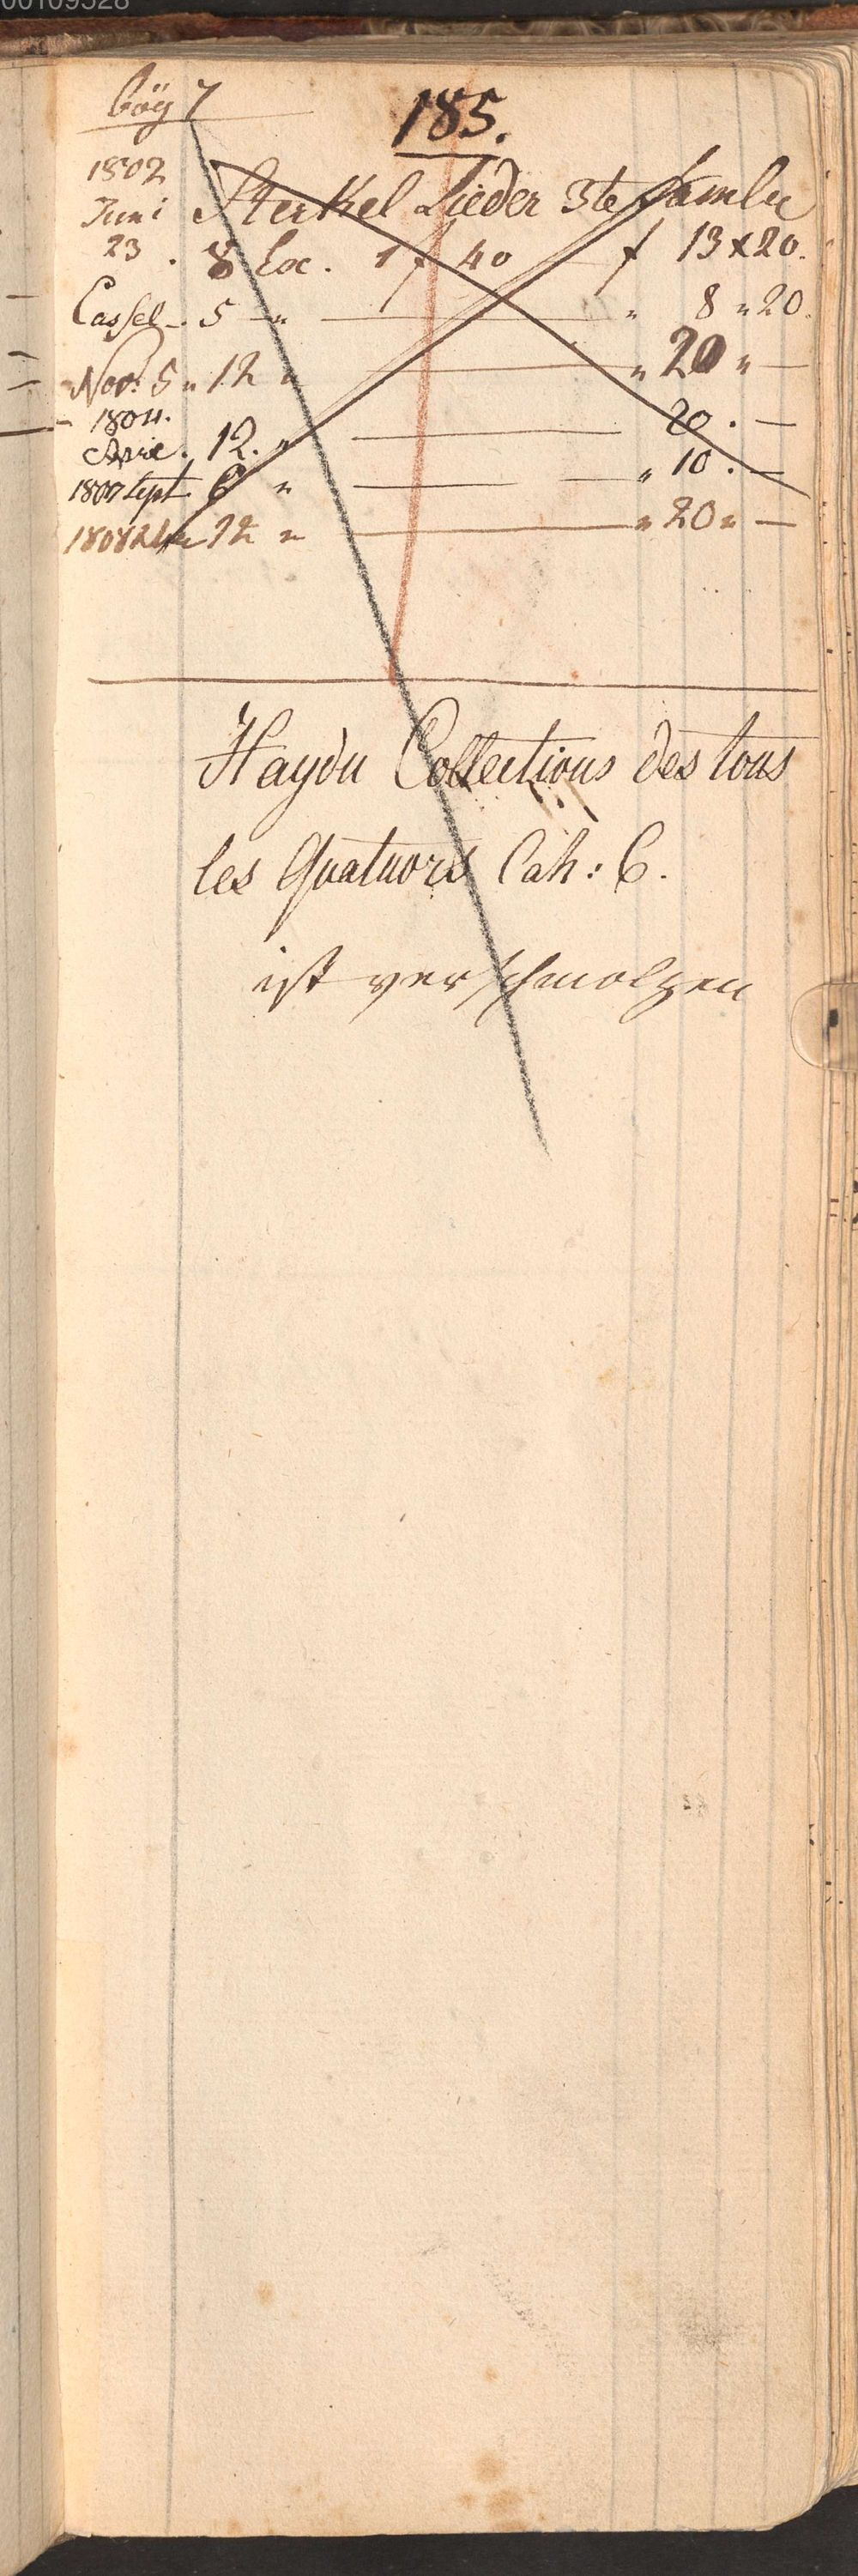 00109528
bög 7
185.
1802
Juni Sterkel Lieder 3te Samlu
23. 8 Ex. 1 f 40 f 13 x 20.
Cassel. 5 " — " 8 " 20.
Nov. 5 " 12 " — " 20 " —
1804.
12. " — 20. —
1807 Sept. 6 " — " 10. —
1808 12 " — " 20 " —
Haydn Collections des tous
les Quatuors Cah: 6.
ist verschmolzen